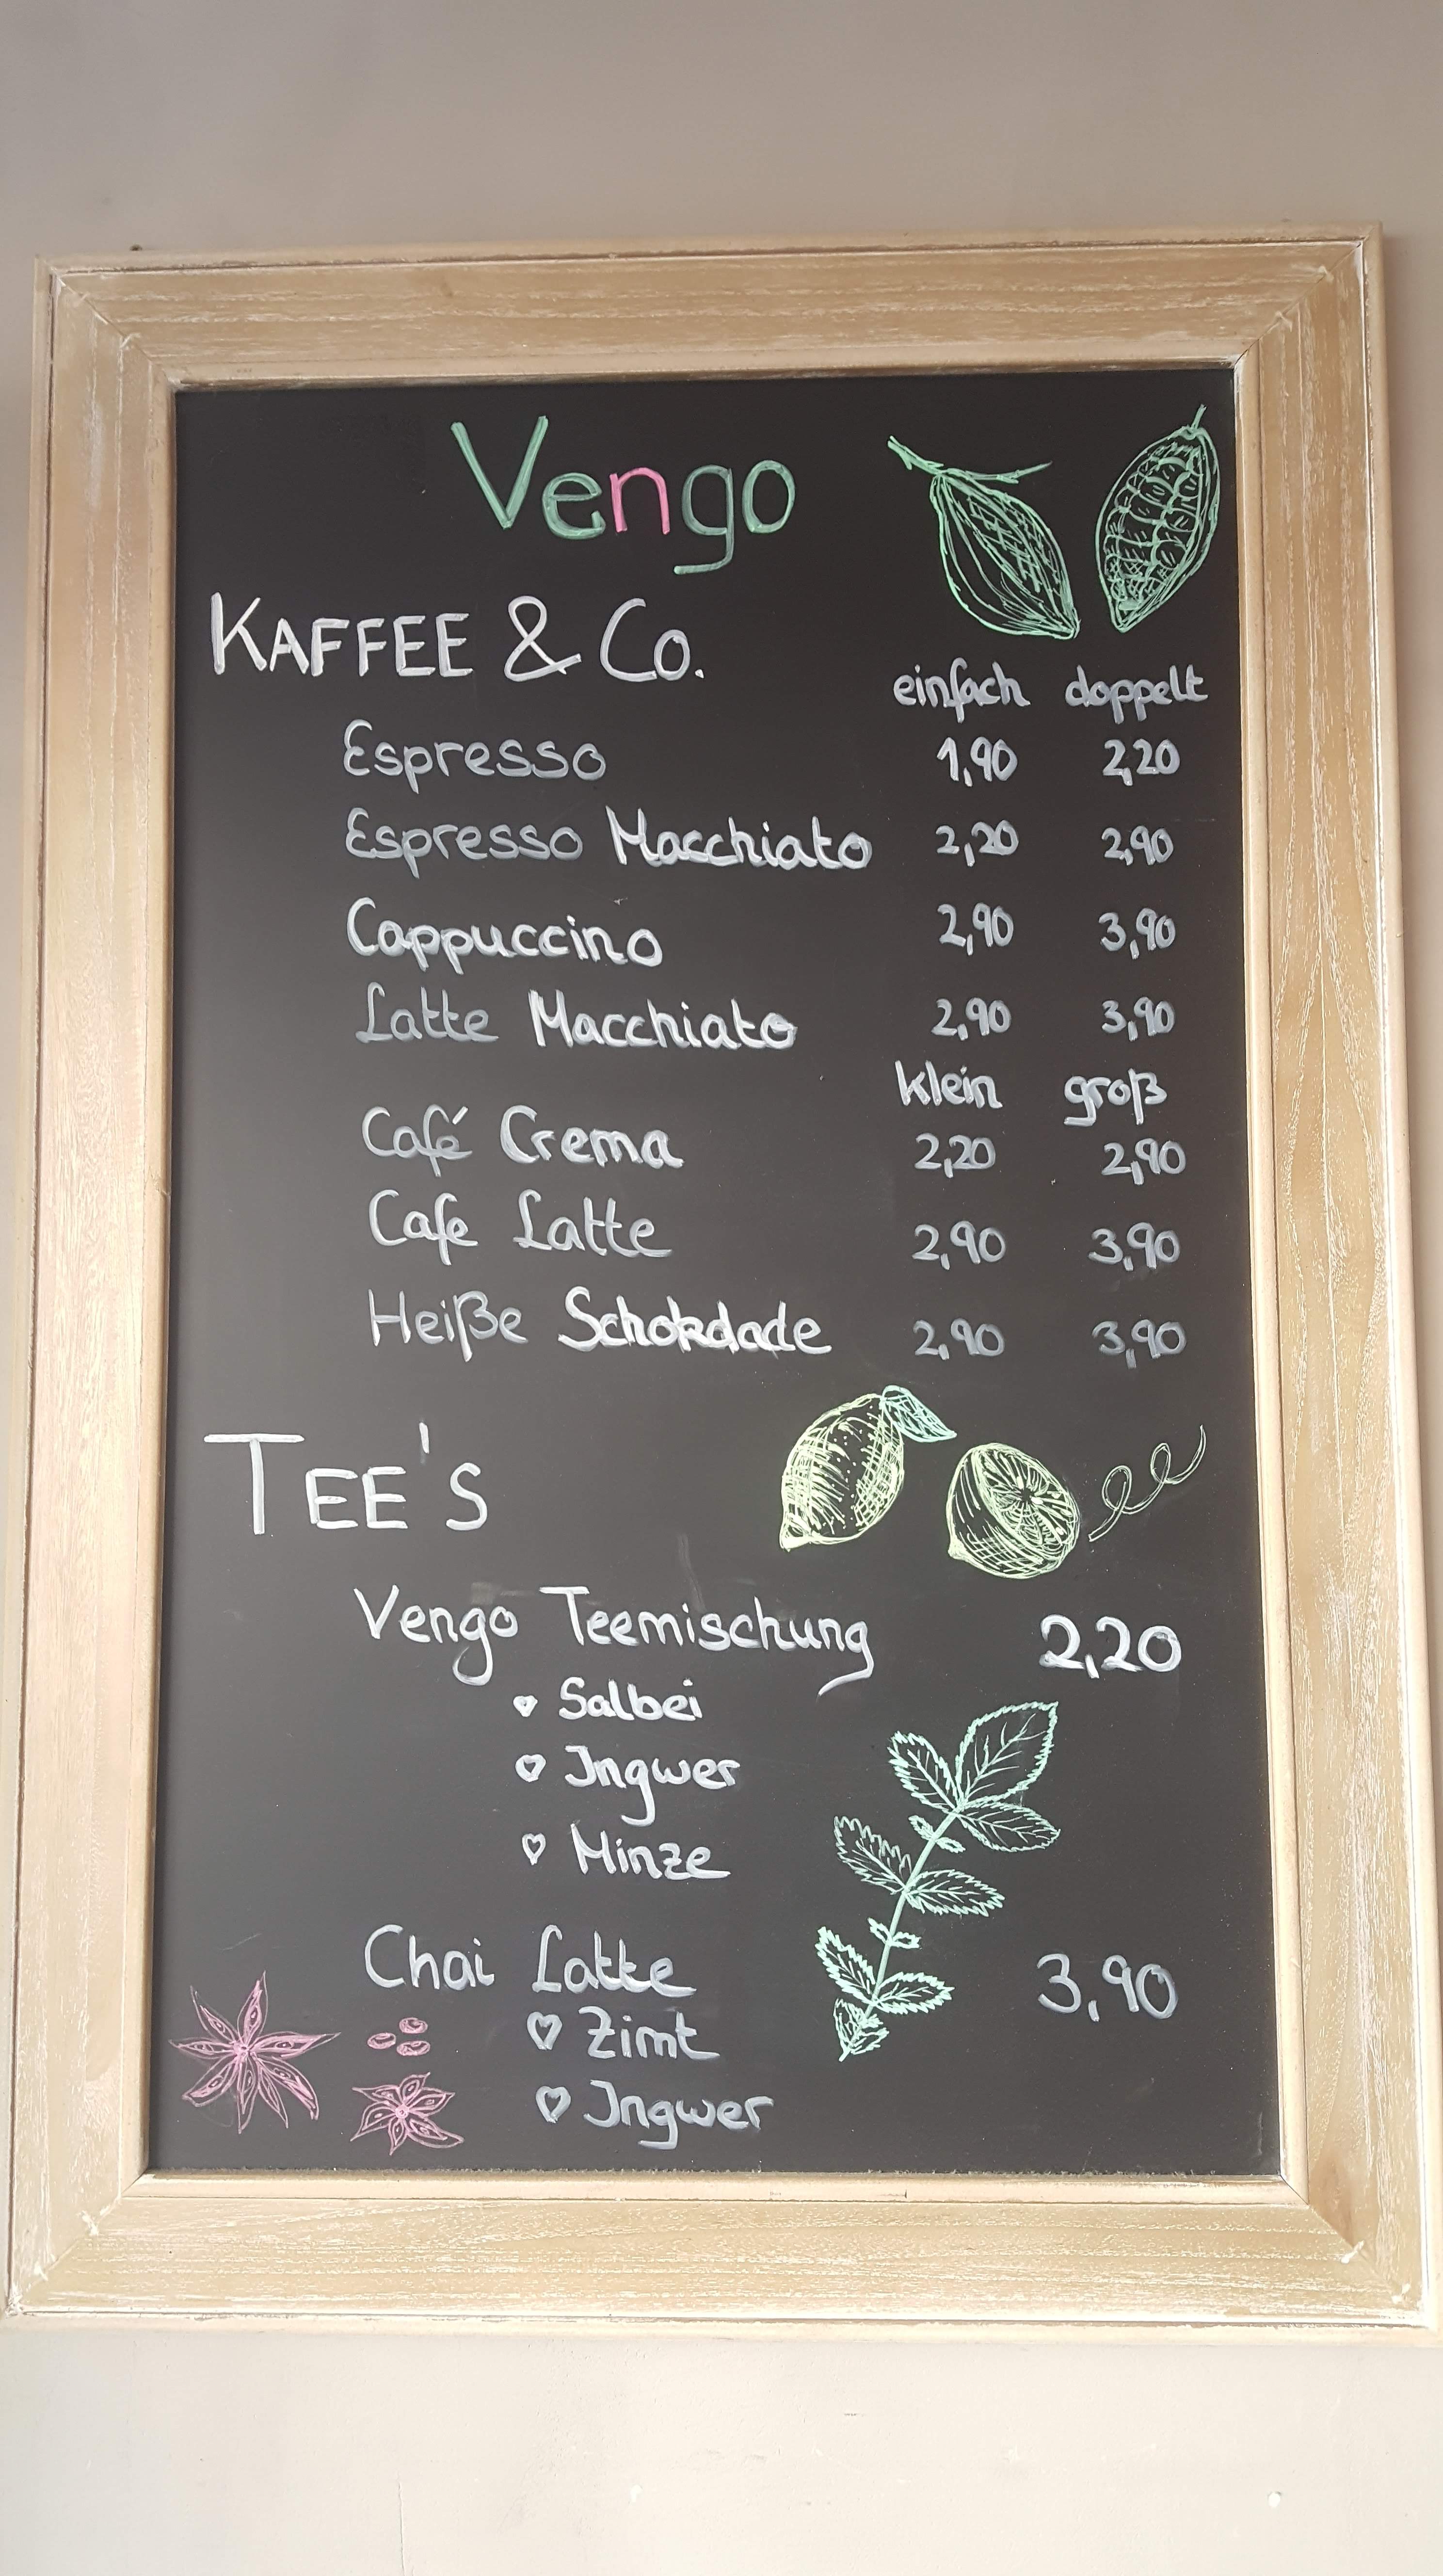 Vengo
KAFFEE & Co.
einfach doppelt
Espresso 1,90 2,20
Espresso Macchiato 2,20 2,90
Cappuccino 2,90 3,90
Latte Macchiato 2,90 3,90
klein groß
Café Crema 2,20 2,90
Cafe Latte 2,90 3,90
Heiße Schokdade 2,90 3,90
TEE'S
Vengo Teemischung 2,20
♥ Salbei
♡ Ingwer
♡ Minze
Chai Latte 3,90
♡ Zimt
♡ Ingwer